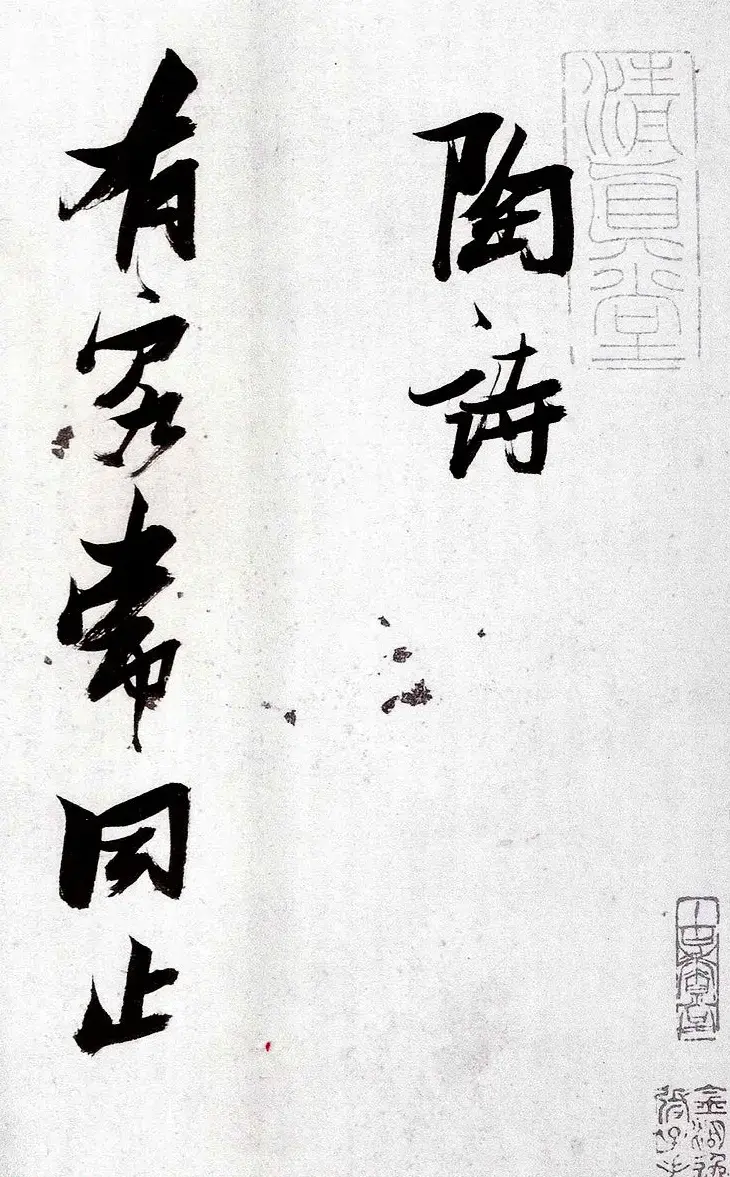 陶诗
有客常同止
清真堂